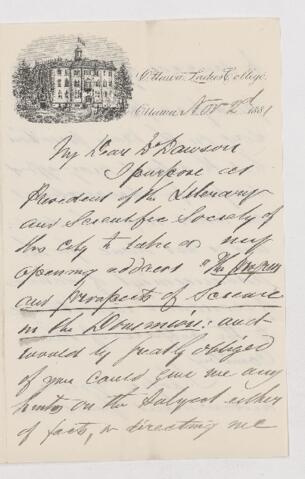 Ottawa Ladies College.
Ottawa, Nov 2nd 1881
My Dear Dr Dawson
I purpose as
President of the Literary
and Scientific Society of
this city to take as my
opening address "The progress
and prospects of Science
in the Dominion: and
would be greatly obliged
if you could give me any
hints on the subject either
of facts, or directing me